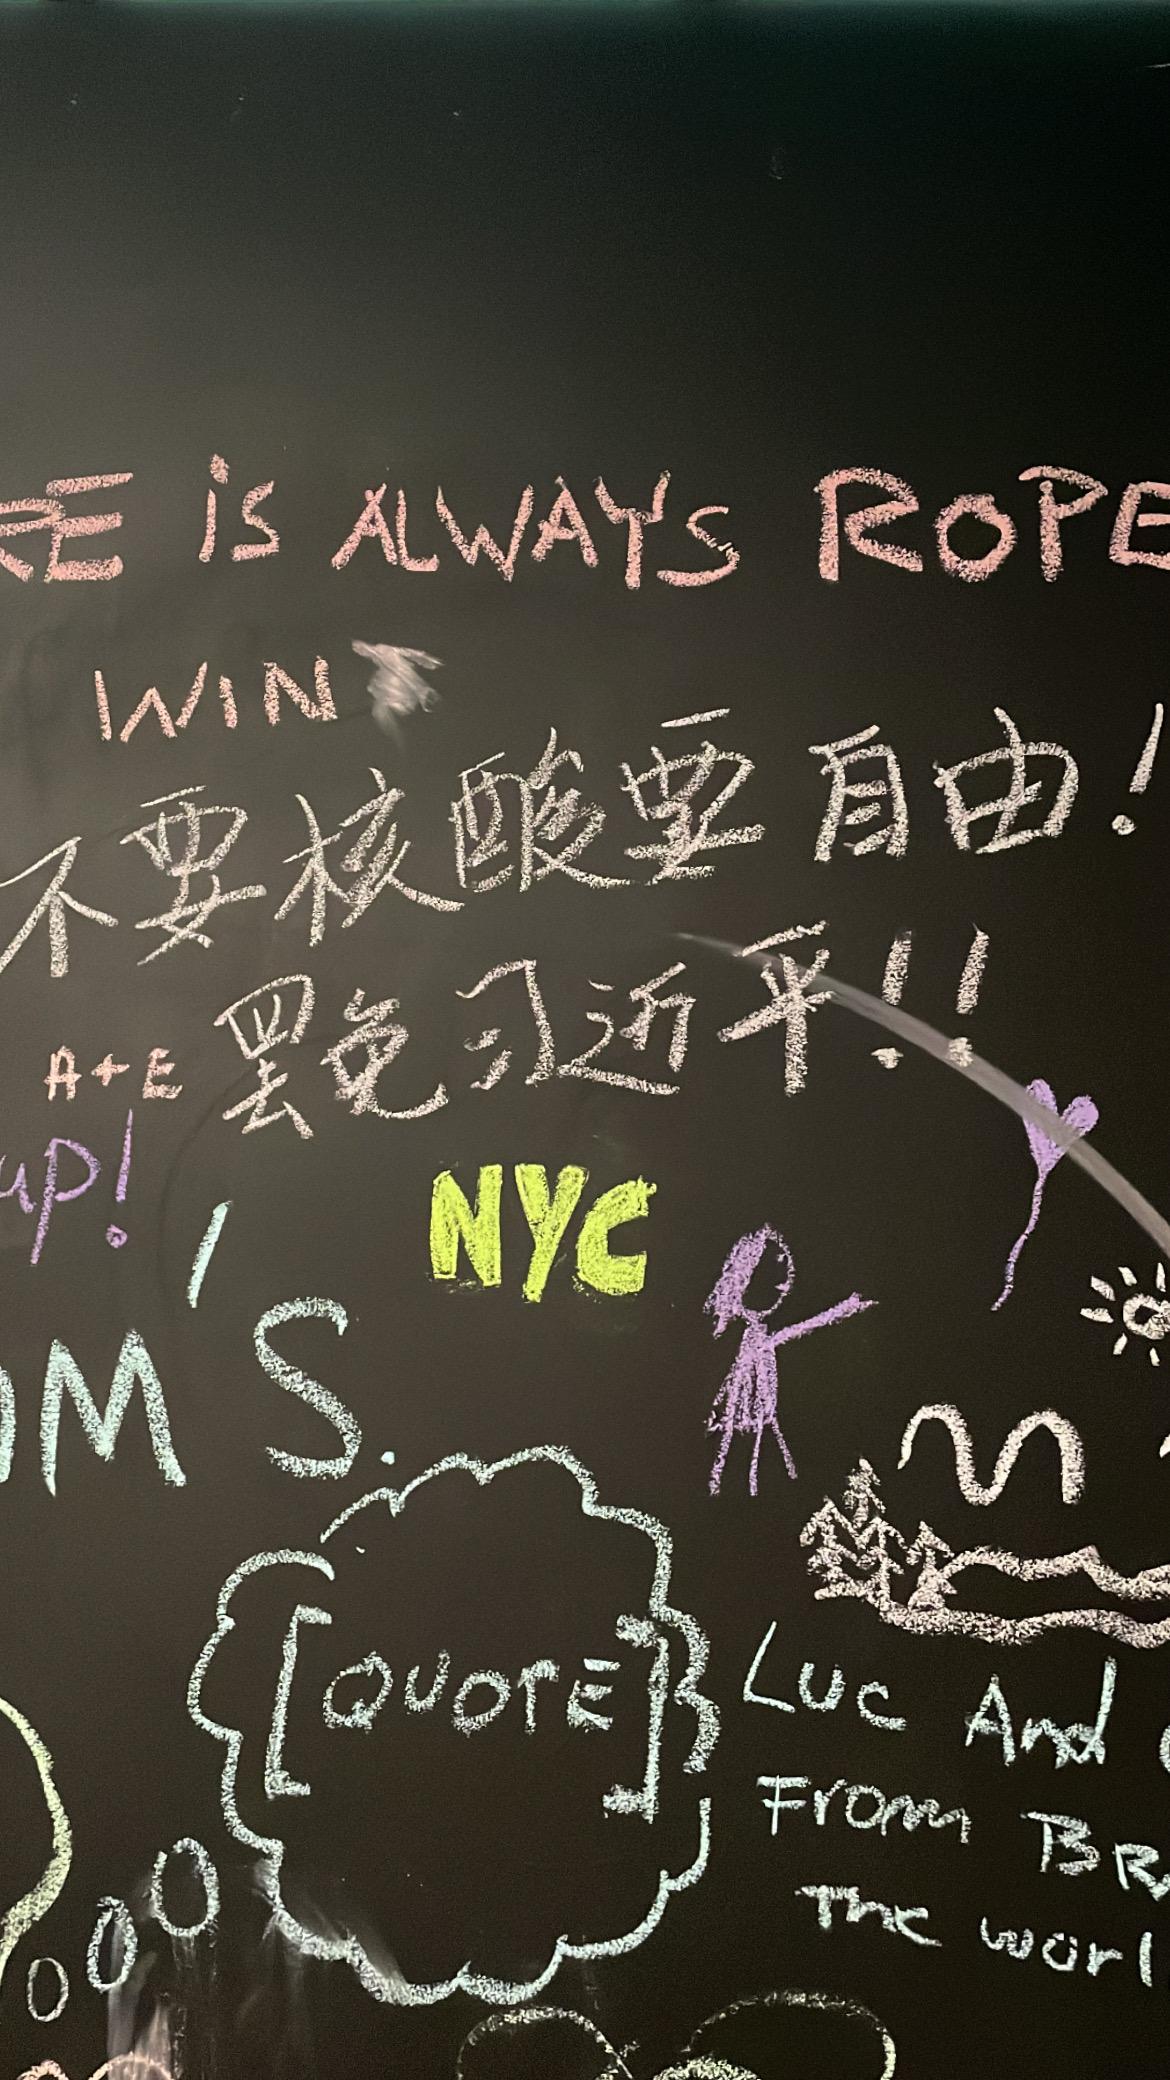 RE is ALWAYS ROPE
WIN
不要核酸要自由!
罢免习近平!!
A+E
up!
NYC
OM S.
[QUOTE]
Luc And
From BR
The worl